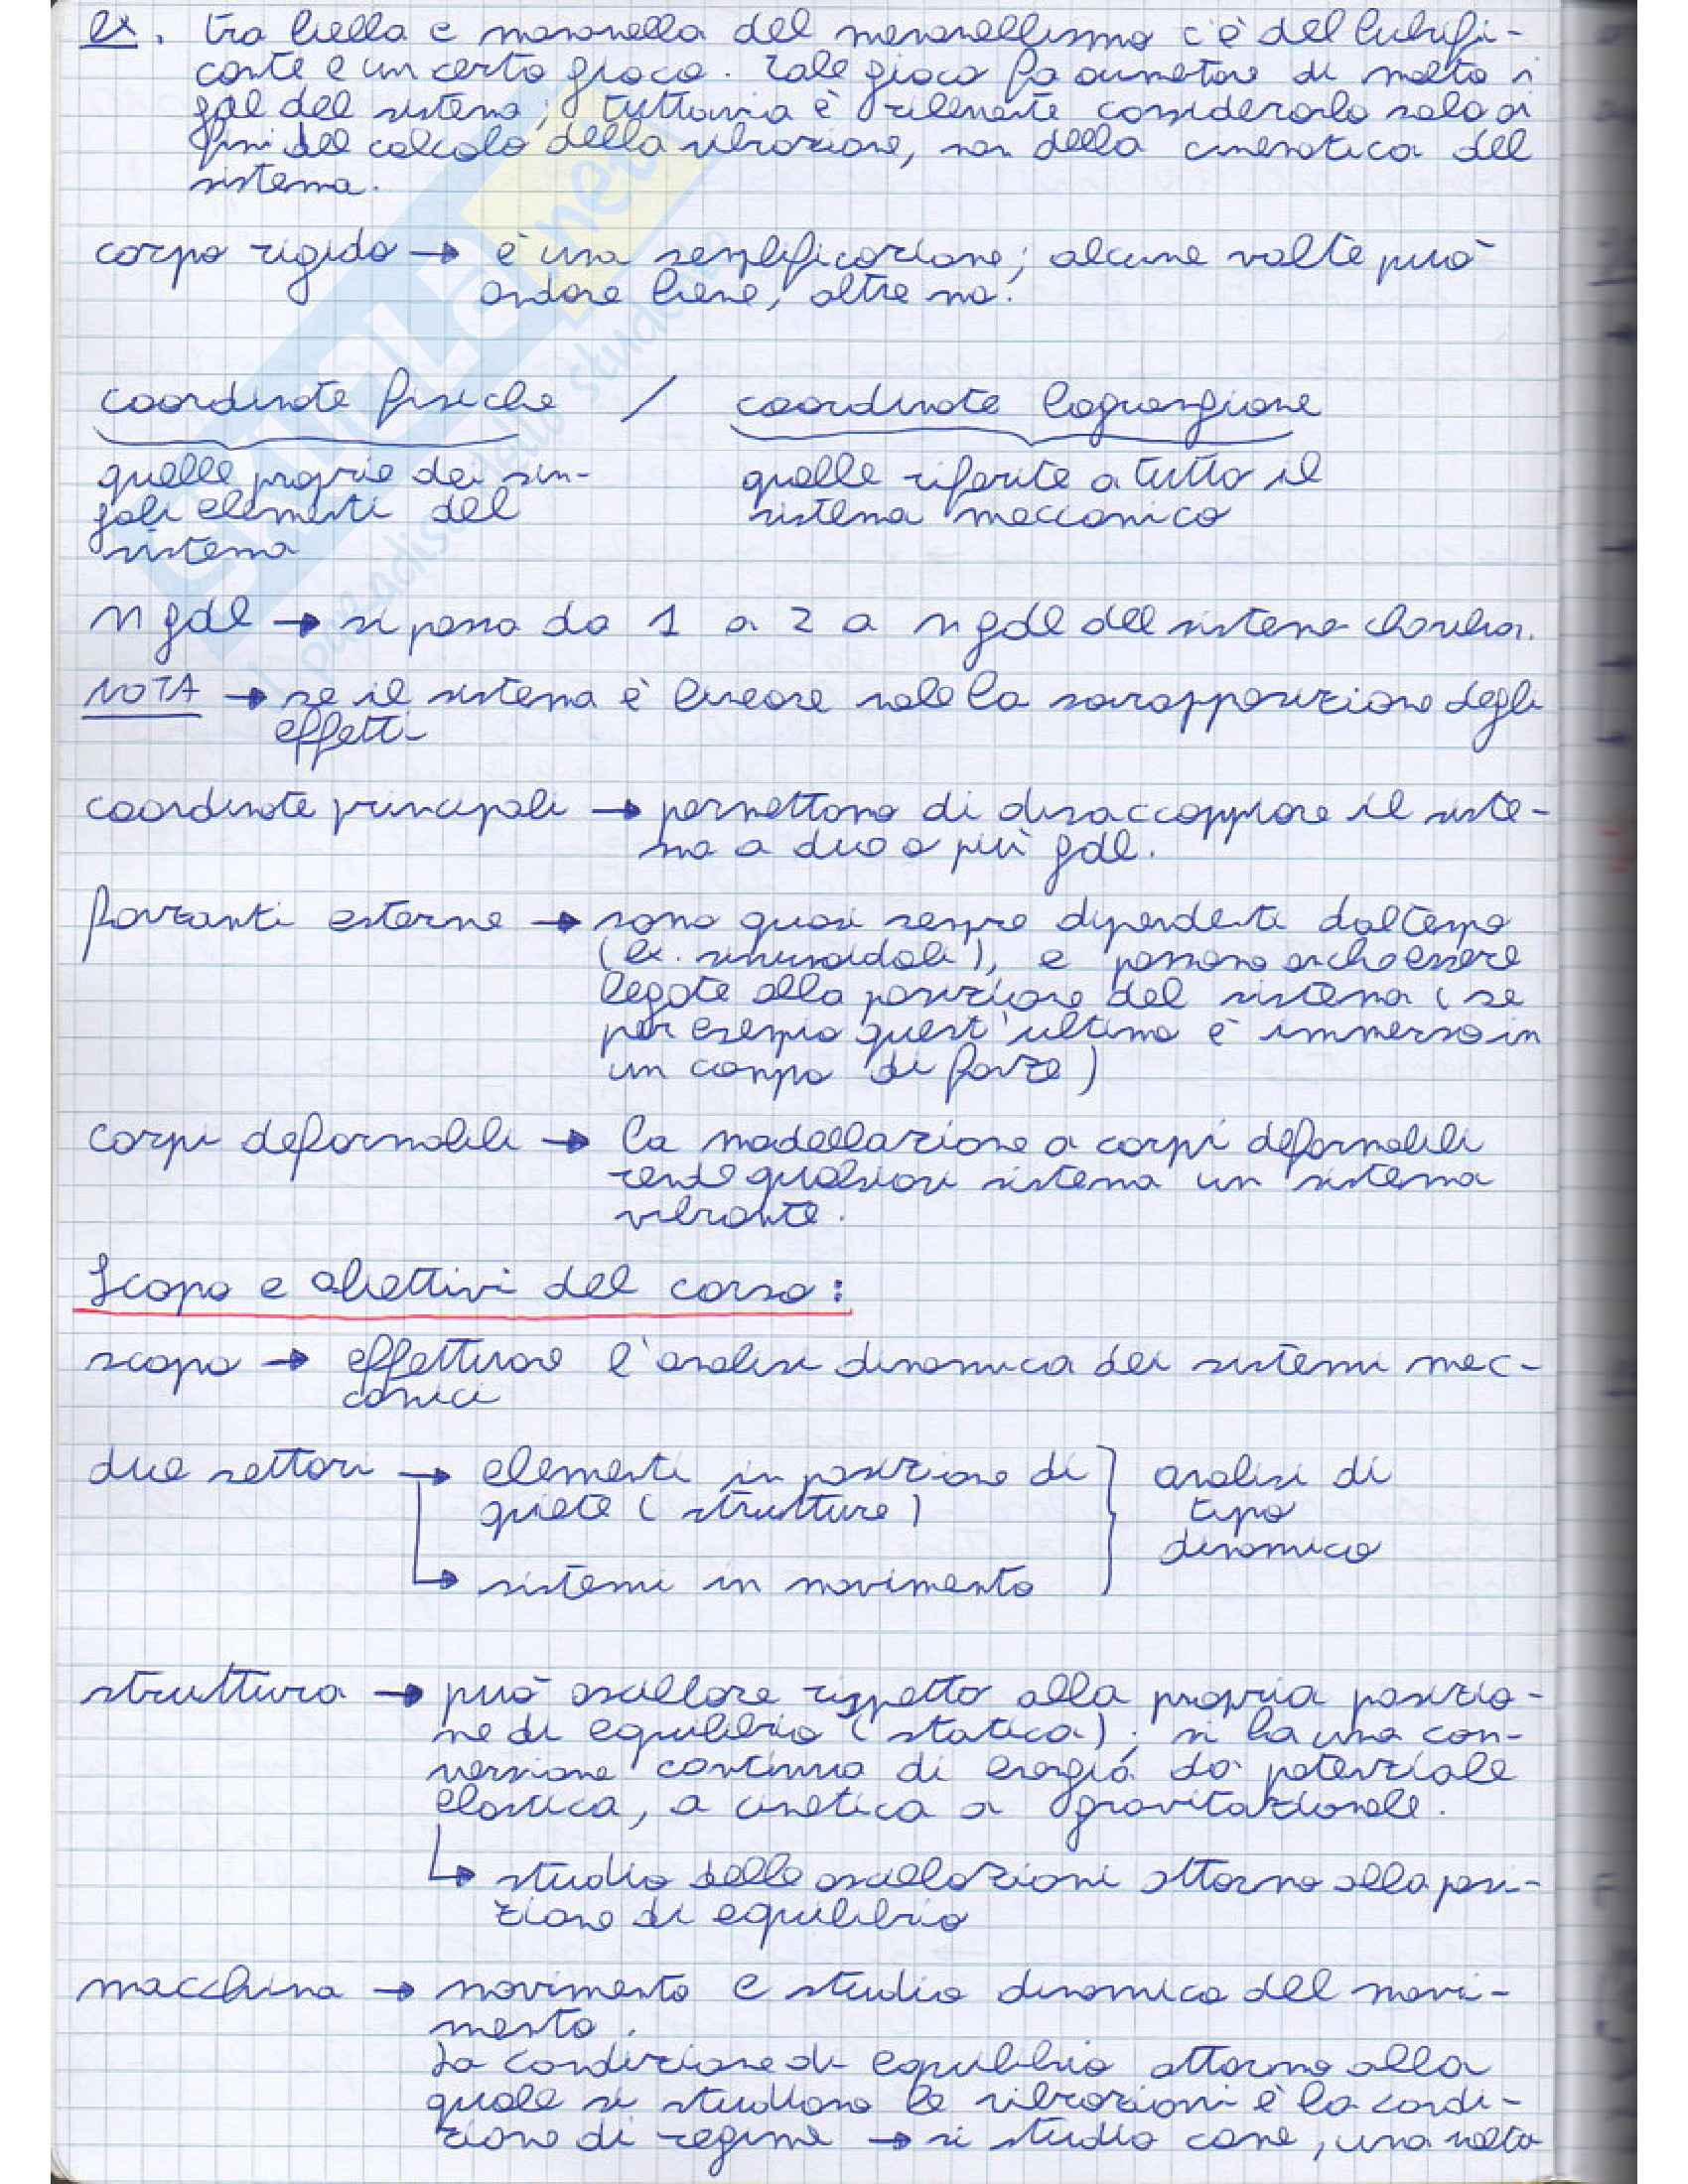 ex. tra biella e manovella del manovellismo c'è del lubrifi-
cante e un certo gioco. Tale gioco fa aumentare di molto i
gdl del sistema; tuttavia è rilevante considerarlo solo ai
fini del calcolo della vibrazione, non della cinematica del
sistema.
corpo rigido → è una semplificazione; alcune volte può
andare bene, altre no.
coordinate fisiche / coordinate lagrangiane
quelle proprie dei sin-
goli elementi del
sistema
quelle riferite a tutto il
sistema meccanico
n gdl → si passa da 1 a 2 a n gdl del sistema
NOTA → se il sistema è lineare vale la sovrapposizione degli
effetti
coordinate principali → permettono di disaccoppiare il siste-
ma a due o più gdl.
forzanti esterne → sono quasi sempre dipendenti dal tempo
(ex. sinusoidali), e possono anche essere
legate alla posizione del sistema (se
per esempio quest'ultimo è immerso in
un campo di forze)
corpi deformabili → la modellazione a corpi deformabili
rende qualsiasi sistema un sistema
vibrante.
Scopo e obiettivi del corso:
scopo → effettuare l'analisi dinamica dei sistemi mec-
canici
due settori → elementi in posizione di
quiete (strutture)
↳ sistemi in movimento
analisi di
tipo
dinamico
struttura → può oscillare rispetto alla propria posizio-
ne di equilibrio (statica); si ha una con-
versione continua di energia da potenziale
elastica, a cinetica a gravitazionale.
↳ studio delle oscillazioni attorno alla posi-
zione di equilibrio
macchina → movimento e studio dinamico del movi-
mento.
La condizione di equilibrio attorno alla
quale si studiano le vibrazioni è la condi-
zione di regime → si studia come, una volta